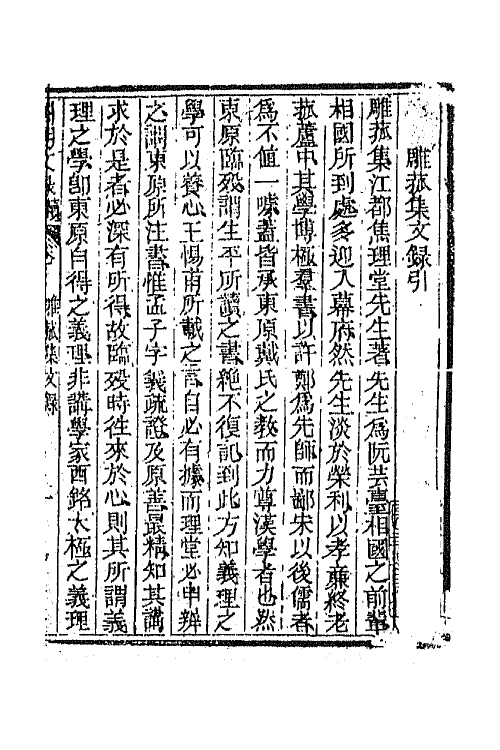 雕菰集文錄引
雕菰集江都焦理堂先生著先生爲阮芸臺相國之前輩
相國所到處多迎入幕府然先生淡於榮利以孝廉終老
菰蘆中其學博極羣書以許鄭爲先師而鄙宋以後儒者
爲不值一嗛蓋皆承東原戴氏之教而力尊漢學者也然
東原臨歿謂生平所讀之書絶不復記到此方知義理之
學可以養心王惕甫所載之言自必有據而理堂必申辨
之謂東原所注書惟孟子字義疏證及原善最精知其講
求於是者必深有所得故臨歿時徃來於心則其所謂義
理之學卽東原自得之義理非講學家西銘太極之義理
雕菰集文錄